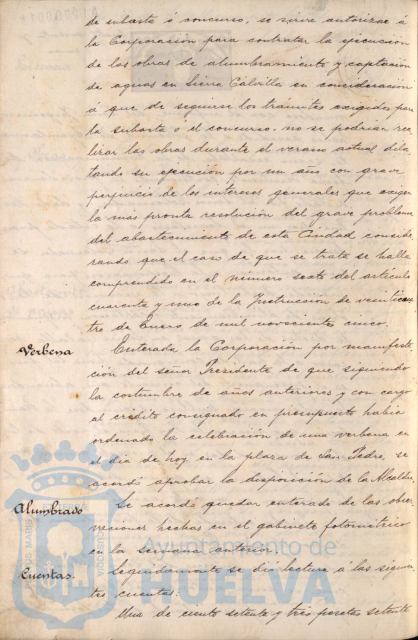 de subasta ó concurso, se sirve autorizar á
la Corporación para contratar la ejecución
de las obras de alumbramiento y captación
de aguas en Sierra Calvilla en consideración
á que de seguirse los trámites exigidos para
la subasta o el concurso no se podrían rea
lizar las obras durante el verano actual dila
tando su ejecución por un año con grave
perjuicio de los intereses generales que exigen
la mas pronta resolución del grave problema
del abastecimiento de esta Ciudad conside
rando que el caso de que se trata se halla
comprendido en el número sexto del artículo
cuarenta y uno de la Instrucción de veinticua
tro de Enero de mil novecientos cinco.
Verbena
Enterada la Corporación por manifesta
ción del señor Presidente de que siguiendo
la costumbre de años anteriores y con cargo
al crédito consignado en presupuesto había
ordenado la celebración de una verbena en
el dia de hoy en la plaza de San Pedro, se
acordó aprobar la disposición de la Alcaldía.
Alumbrado
Se acordó quedar enterado de las obser
vaciones hechas en el gabinete fotométrico
en la semana anterior.
Cuentas.
Seguidamente se dio lectura a las siguien
tes cuentas:
Una de ciento setenta y tres pesetas setenta
Ayuntamiento de
HUELVA